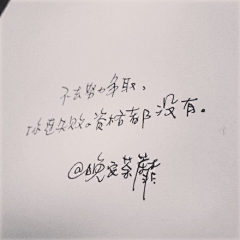 不去努力争取，
你连失败的资格都没有。
@晚安荼蘼